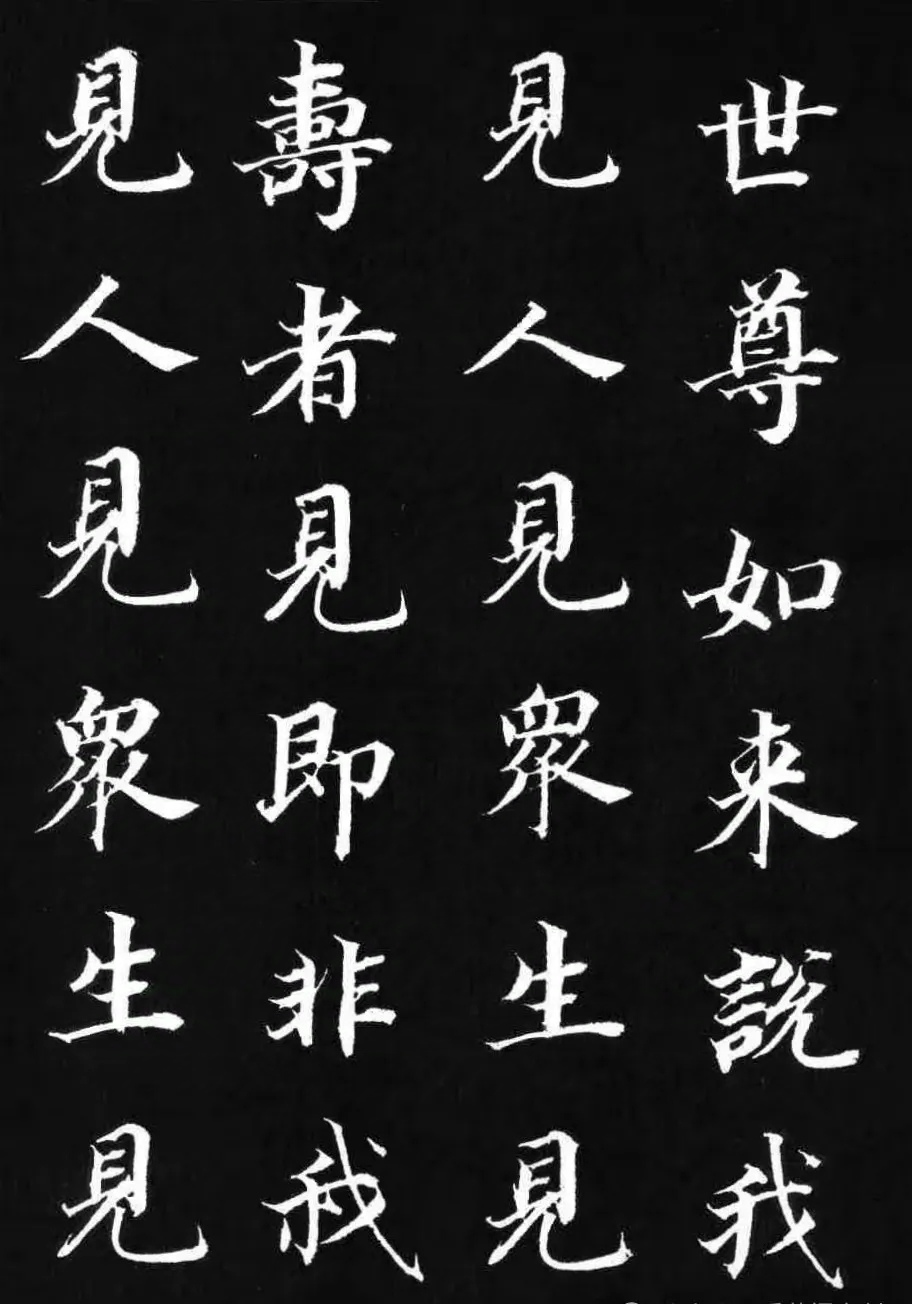 世尊如来說我
見人見衆生見
壽者見即非我
見人見衆生見